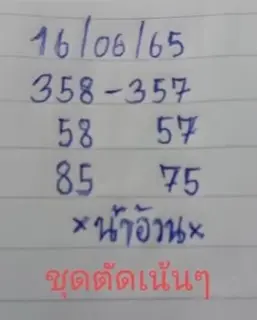 16/06/65
358-357
58 57
85 75
×น้าอ้วน×
ชุดตัดเน้นๆ